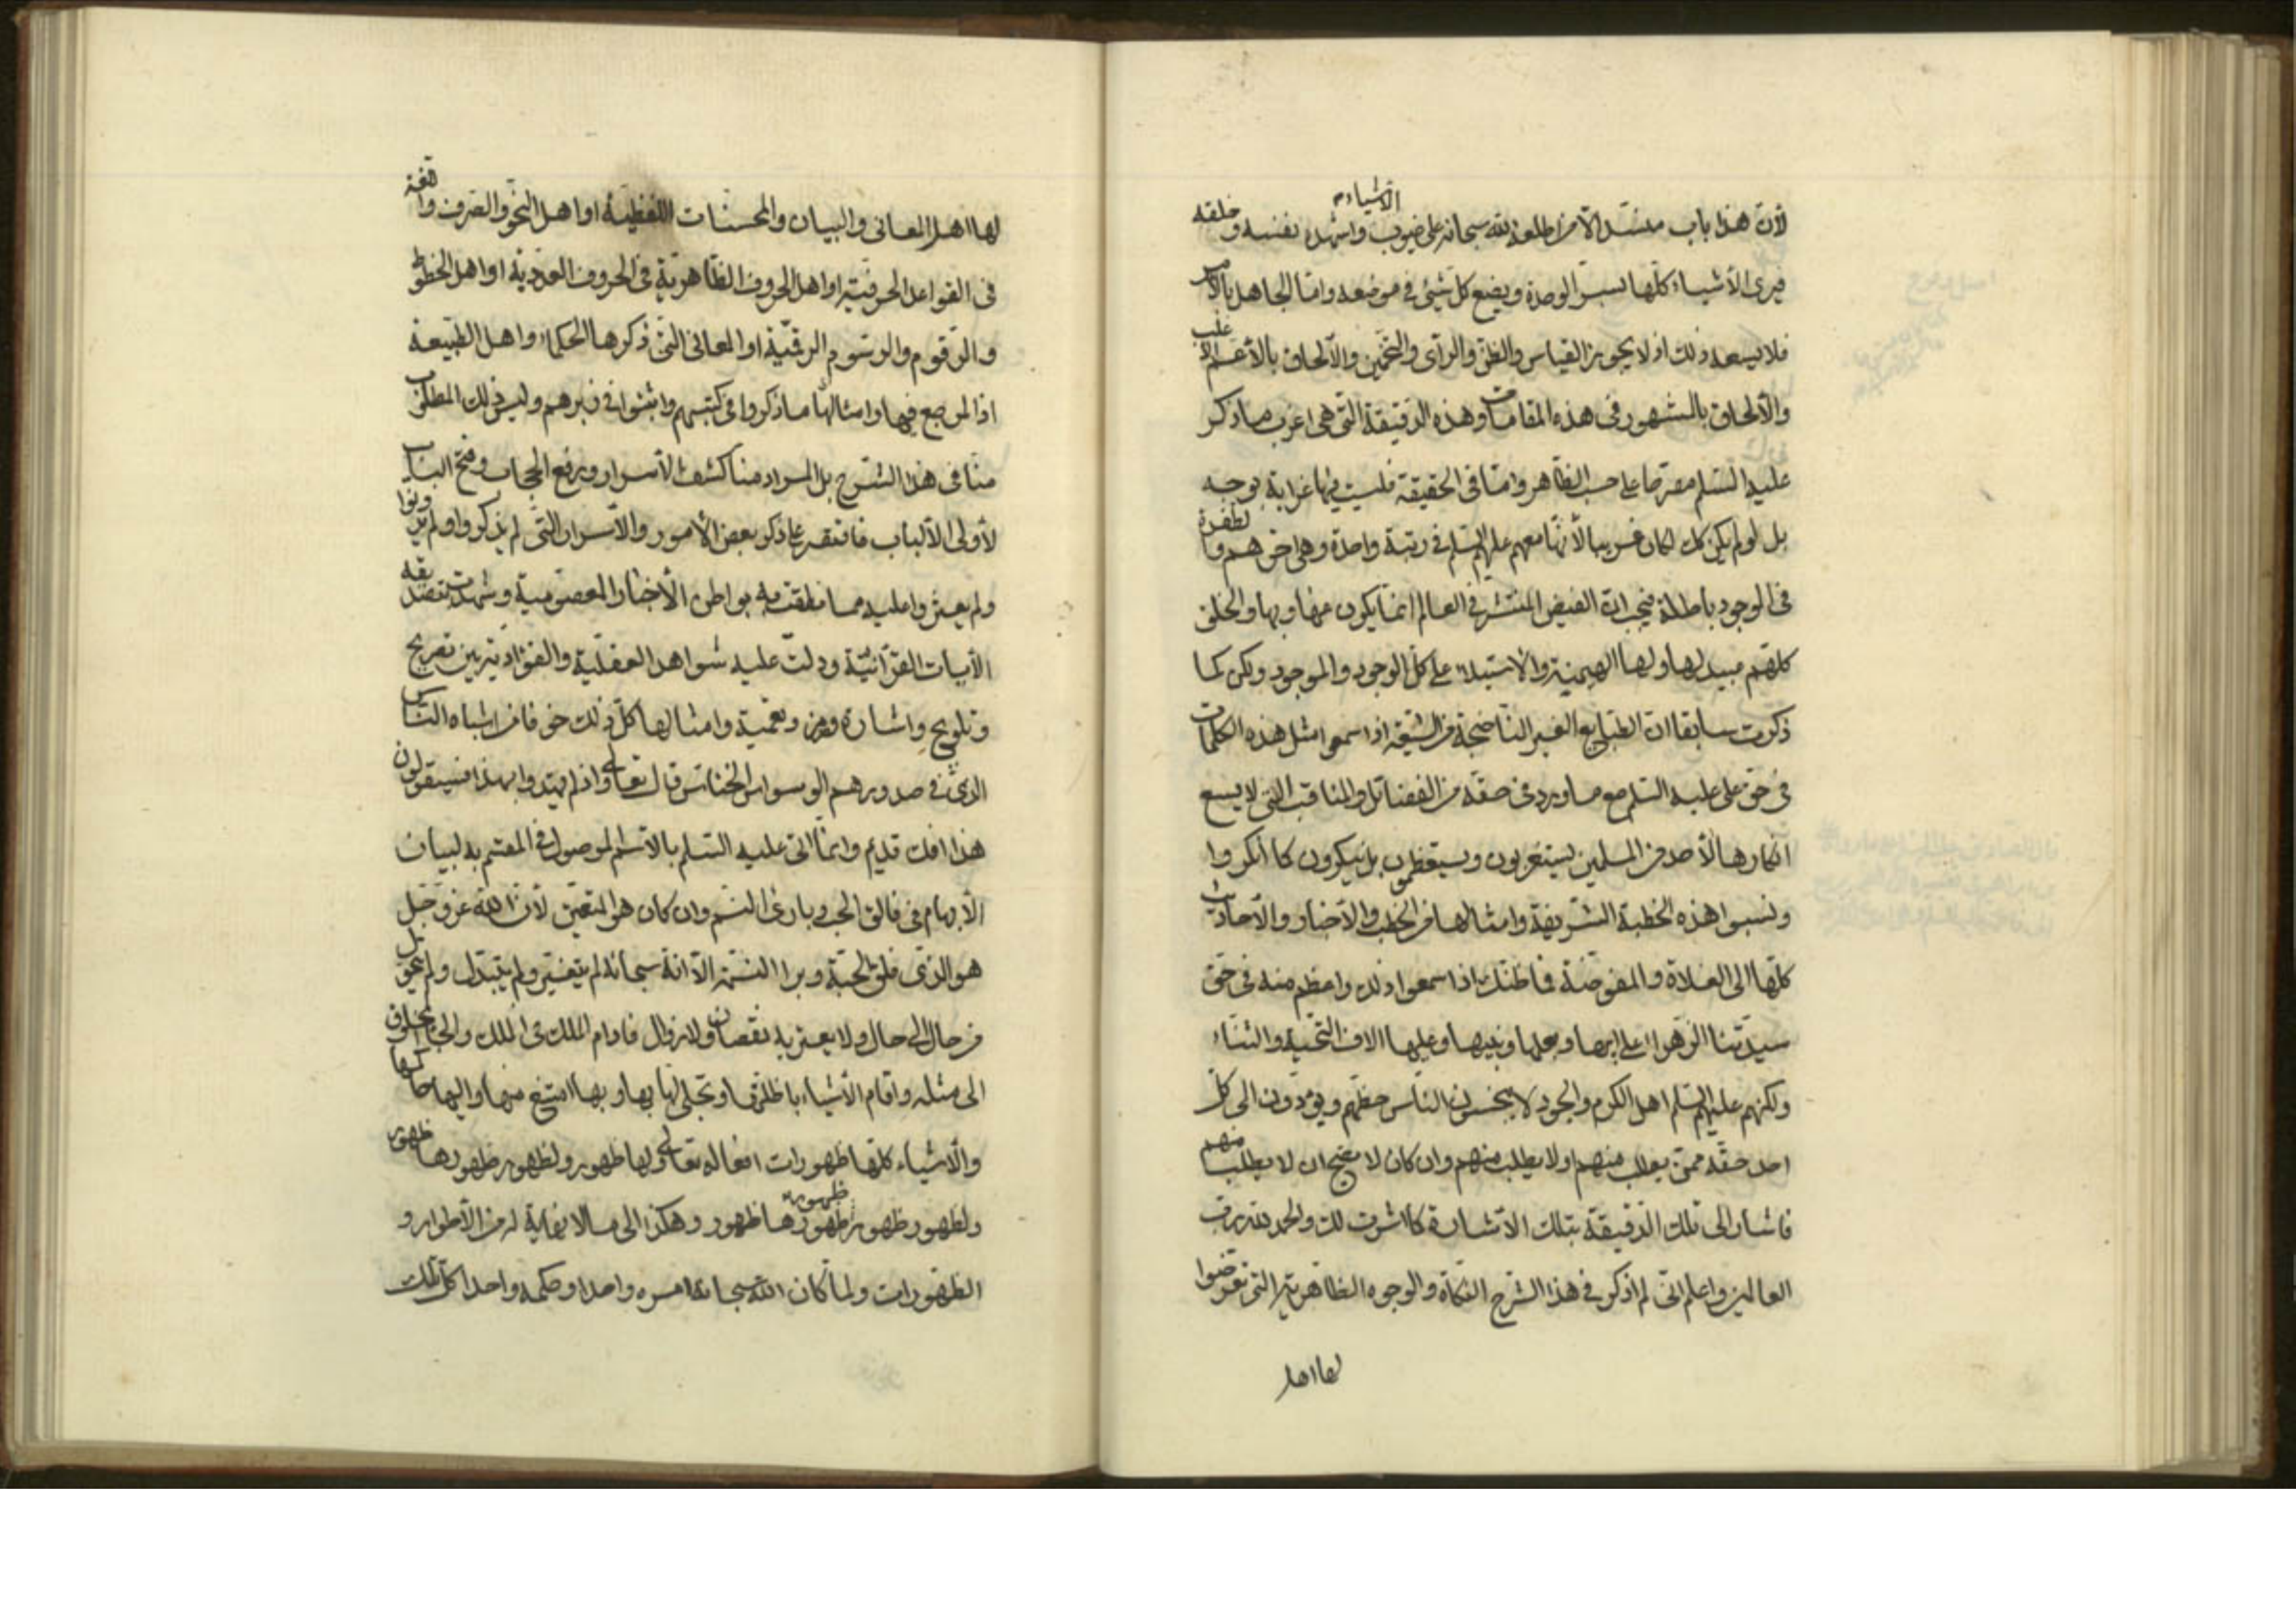 الاشياء
لأن هذا باب منسد الا من اطلعه الله سبحانه على غيوب واشهده نفسه وخلقه
فيرى الأشياء كلها بسر الوحدة ويضع كل شيئ في موضعه واما الجاهل بالأمر
فلا يسعه ذلك اذ لا يجوز القياس والظن والرأى والتخمين والالحاق بالأعم الأغلب
والالحاق بالمشهور في هذه المقامات وهذه الدقيقة التي هي اغرب ما ذكر
عليه السلم معترضا على حسب الظاهر واما في الحقيقة فليست فيها غرابة بوجه
بل لو لم يكن كك لكان غريبا لأنها معهم عليهم السلم في رتبة واحدة وهي اختهم والطفرة
في الوجود باطلة فيجب ان الفيض المنتشر في العالم انما يكون منها وبها والخلق
كلهم عبيد لها ولها الهيمنة والاستيلاء على كل الوجود والموجود ولكن كما
ذكرت سابقا ان الطبايع الغير الناضجة من الشيعة اذا سمعوا مثل هذه الكلمات
في حق علي عليه السلم مع ما ورد في حقه من الفضائل والمناقب التي لا يسع
انكارها لأحد من المسلمين يستغربون ويستعظمون بل ينكرون كما انكروا
ونسبوا هذه الخطبة الشريفة وامثالها من الخطب والأخبار والأحاديث
كلها الى الغلاة والمفوضة فما ظنك اذا سمعوا ذلك واعظم منه في حق
سيدتنا الزهراء على ابيها وبعلها وبنيها وعليها الاف التحية والثناء
ولكنهم عليهم السلم اهل الكرم والجود لا يبخسون الناس حظهم ويؤدون الى كل
احد حقه ممن يطلب منهم ولا يطلب منهم وان كان لا يصح ان لا يطلب منهم
فاشار الى تلك الدقيقة بتلك الاشارة كما اشرت لك والحمد لله رب
العالمين واعلم اني لم اذكر في هذا الشرح النكات والوجوه الظاهرية التي تعرضوا
لها اهل
لها اهل المعاني والبيان والمحسنات اللفظية او اهل النحو والصرف واللغة
في القواعد الحرفية او اهل الحروف الظاهرية في الحروف العددية او اهل الخطوط
والرقوم والرسوم الرقمية او المعاني التي ذكرها الحكماء واهل الطبيعة
اذ المرجع فيها وامثالها ما ذكروا في كتبهم واثبتوا في زبرهم وليس ذلك المطلوب
منا في هذا الشرح بل المراد منا كشف الأسرار ورفع الحجاب وفتح الباب
لأولى الألباب فانتصر على ذكر بعض الأمور والأسرار التي لم يذكروا ولم يدونوا
ولم يعثروا عليه مما نطقت به بواطن الأخبار المعصومية وشهدت بتصديقه
الآيات القرآنية ودلت عليه شواهد العقلية والفؤادية بين تصريح
وتلويح واشارة ورمز وتعمية وامثالها كل ذلك خوفا من اشباه الناس
الذي في صدورهم الوسواس الخناس قال تعالى واذ لم يهتدوا به فسيقولون
هذا افك قديم وانما اتى عليه السلم بالاسم الموصول في المقسم به لبيان
الابهام في فالق الحب وبارئ النسم وان كان هو المتعين لأن الله عز وجل
هو الذي فلق الحبة وبرا النسمة الا انه سبحانه لم يتغير ولم يتبدل ولم يتحول
من حال الى حال ولا يعتريه نقصان ولا زوال فادام الملك في الملك والجأ المخلوق
الى مثله واقام الأشياء باظلتها وتجلى لها بها وبها امتنع منها واليها حاكمها
والأشياء كلها ظهورات افعاله تعالى ولها ظهور ولظهور ظهورها ظهور
ولظهور ظهور ظهور ظهورها ظهور وهكذا الى ما لا نهاية له من الأطوار و
الظهورات ولما كان الله سبحانه امره واحدا وحكمه واحدا كل تلك